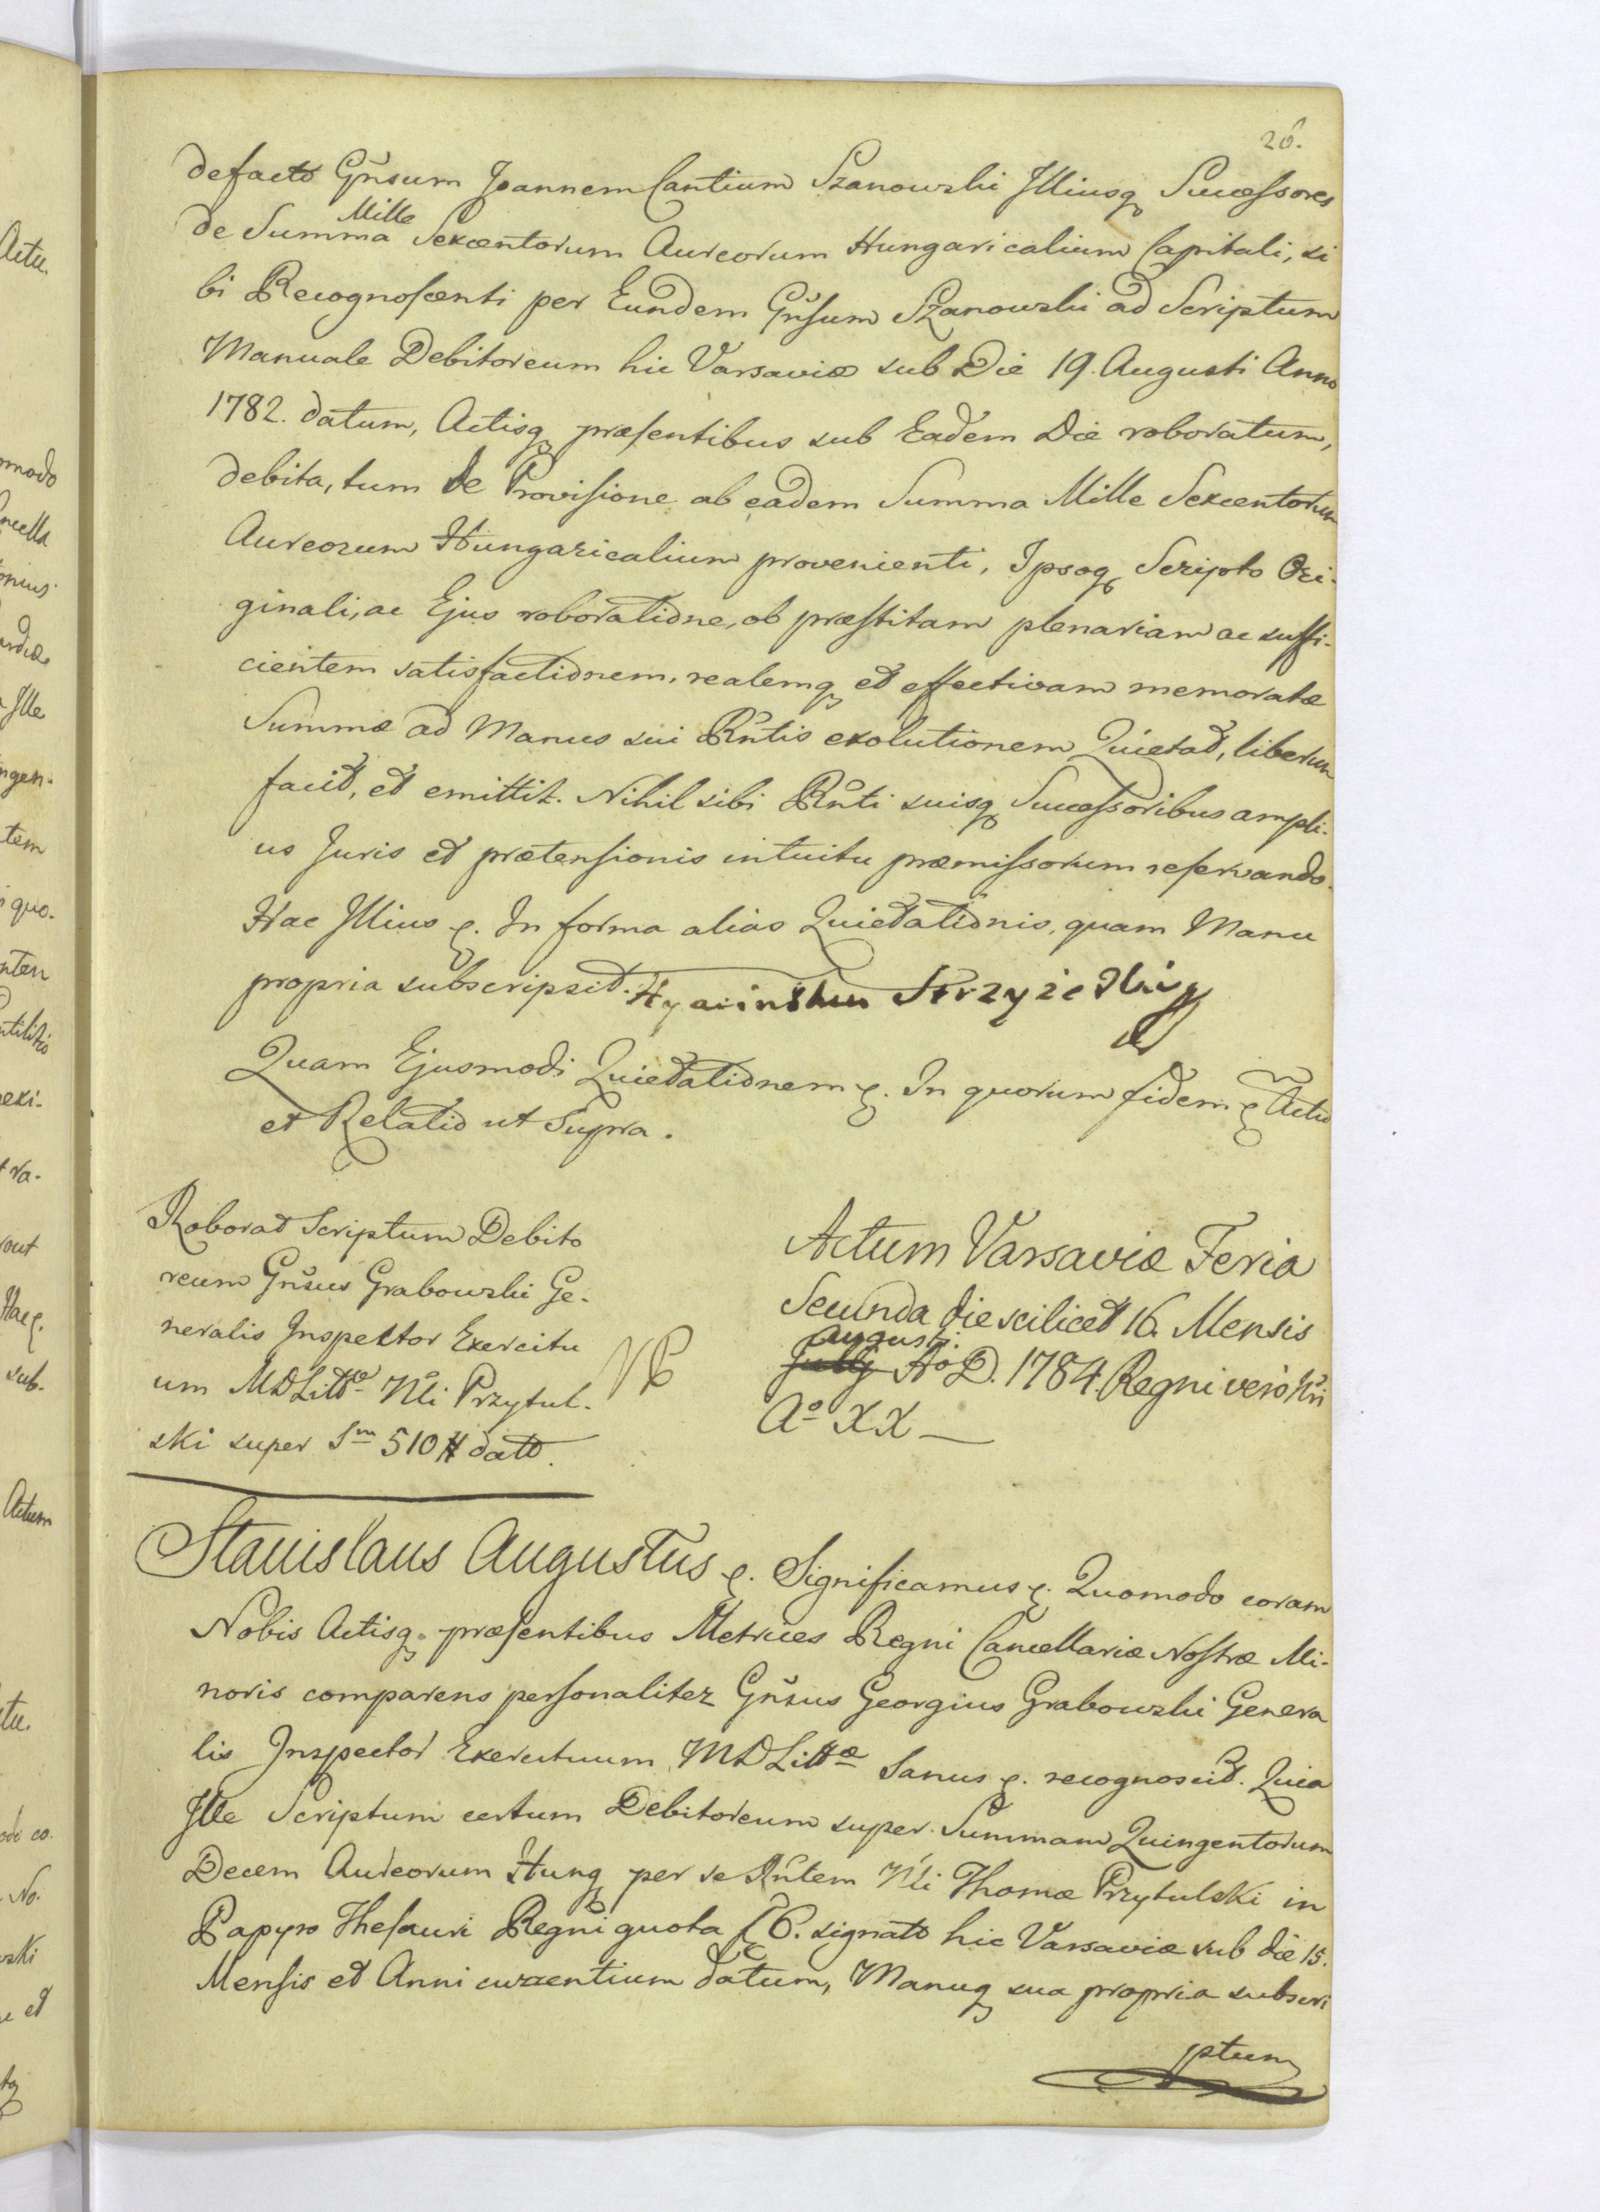 26.
defacto Gñsum Joannem Cantium Szanowski Illiusq Successores
de Summa Mille Sexcentorum Aureorum Hungaricalium Capitali, si
bi Recognoscenti per Eundem Gñsum Szanowski ad Scriptum
Manuale Debitoreum hic Varsaviæ sub Die 19. Augusti Anno
1782. datum, Actisq præsentibus sub Eadem Die roboratum,
debita, tum de Provisione ab eadem Summa Mille Sexcentorum
Aureorum Hungaricalium provenienti, Ipsoq Scripto Ori-
ginali, ac Ejus roboratione, ob præstitam plenariam ac suffi-
cientem satisfactionem, realemq et effectivam memoratæ
Summæ ad Manus sui Rñtis exolutionem Quietat, liberum
facit, et emittit. Nihil sibi Rñti suisq Successoribus ampli-
us Juris et prætensionis intuitu præmissorum reservando.
Hac Illius ę. In forma alias Quietationis, quam Manu
propria subscripsit. Hyacinthus
Quam Ejusmodi Quietationem ę. In quorum fidem ę Actū
et Relatio ut Supra.
Roborat Scriptum Debito
reum Gñsus Grabowski Ge-
neralis Inspektor Exercitu
um MDLittæ Nli Przytul-
ski super Sm 510 # dato.
Actum Varsaviæ Feria
Secunda die scilicet 16. Mensis
Augusti
July Ao D. 1784. Regni vero Nri
Ao XX
Stanislaus Augustus ę. Significamus ę. Quomodo coram
Nobis Actisq præsentibus Metrices Regni Cancellariæ Nostræ Mi-
noris comparens personaliter Gñsus Georgius Grabowski Genera
lis Inspector Exercituum MDLittæ Sanus ę. recognoscit. Quia
Ille Scriptum certum Debitoreum super Summam Quingentorum
Decem Aureorum Hung per se Rñtem Nli Thomæ Przytulski in
Papyro Thesauri Regni quota 6. signato hic Varsaviæ sub die 15.
Mensis et Anni currentium datum, Manuq sua propria subscri
ptum